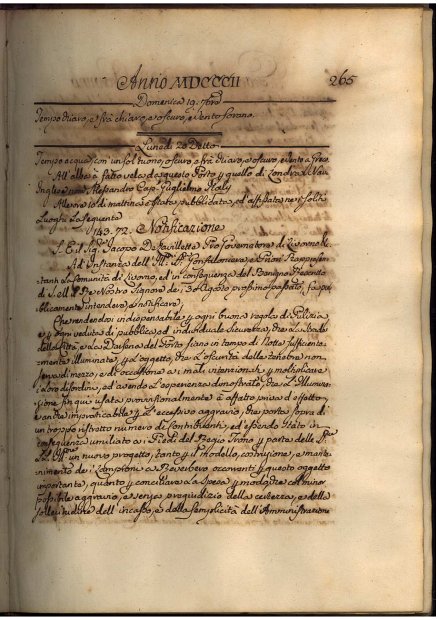 Anno MDCCCII 265
Domenica 19. 7bre
Tempo vario, e frà chiaro, e oscuro, e vento
Lunedi 20 Detto
Tempo acqua, con un fil buono, oscuro, e frà chiaro, e oscuro, e vento a Greco
All'alba à fatto vela da questo Porto p quello di Londra la Nav.
Inglese nom. Alessandro Cap. Guglielmo Italy
Alle ore 10 di mattina è stata pubblicata, ed affissata nei soliti
Luoghi La seguente
143. 72. Notificazione
S. E. il Sig. Jacopo De Governatore di Livorno &c.
Ad Instanza dell' Gonfaloniere, e Priori Rappresen
tanti La Comunità di Livorno, ed in consequenza del Benigno Rescritto
di S. M. il Re Nostro Signore de i 3 Agosto prossimo passato, fa pu
blicamente intendere, e notificare,
Che rendendosi indispensabile p ogni buona regola di Pulizia
e p ogni veduta di pubblica, ed individuale sicurezza, che Le Strade
della Città, e La Darsena del Porto siano in tempo di Notte sufficiente
mente illuminate, p L'oggetto, che L'oscurità delle tenebre non
serva di mezzo, e di occasione a i mali intenzionati p moltiplicare
i Loro disordini, ed avendo L'esperienza dimostrato, che La Illumina
zione fin quì usata provvisionalmente è affatto priva d'effetto
e anche impraticabile p L'eccessivo aggravio, che porta sopra di
un troppo ristretto numero di Contribuenti, ed essendo stato in
consequenza umiliato a i Piedi del Regio Trono p parte delle
LL. un nuovo progetto, tanto p il modello, costruzione, e mante
nimento de i Lampioni a Reverbero occorrenti p questo oggetto
importante, quanto p conciliare La spesa p modo, che col minor
possibile aggravio, e senza pregiudizio della certezza, e della
sollecitudine dell'incasso, e della semplicità dell'Amministrazione